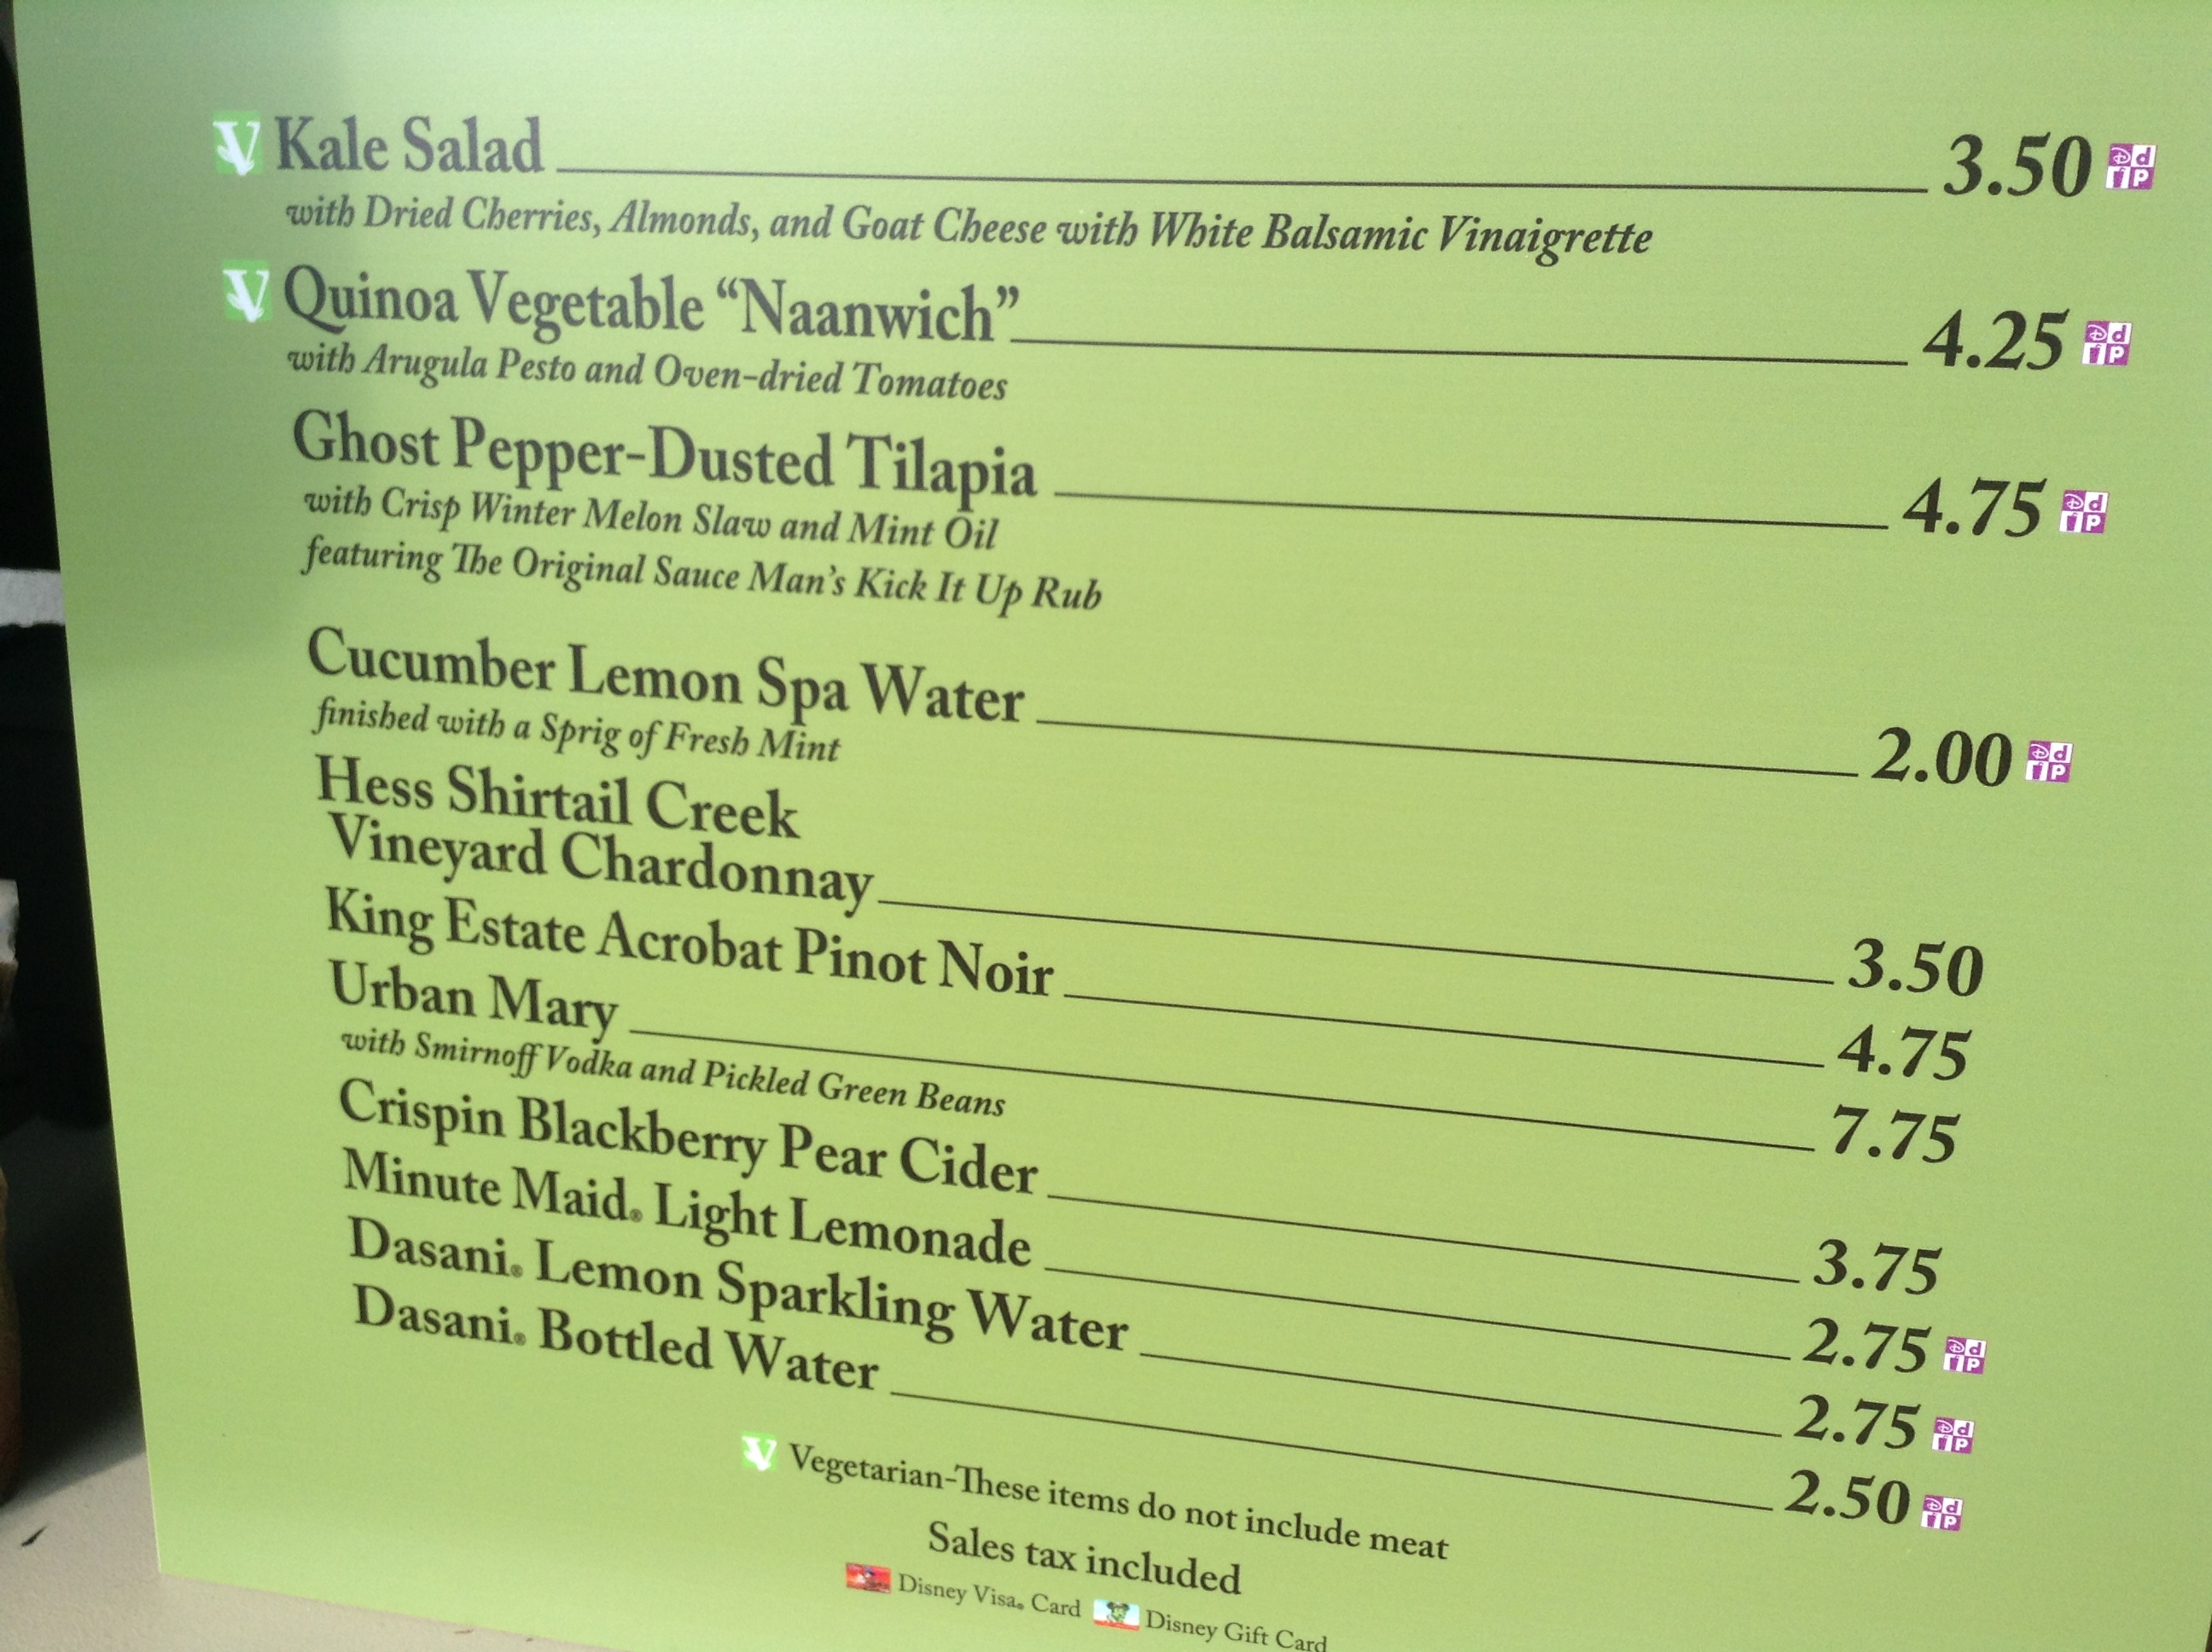 V Kale Salad 3.50 DdIP
with Dried Cherries, Almonds, and Goat Cheese with White Balsamic Vinaigrette
V Quinoa Vegetable “Naanwich” 4.25 DdIP
with Arugula Pesto and Oven-dried Tomatoes
Ghost Pepper-Dusted Tilapia 4.75 DdIP
with Crisp Winter Melon Slaw and Mint Oil
featuring The Original Sauce Man’s Kick It Up Rub
Cucumber Lemon Spa Water 2.00 DdIP
finished with a Sprig of Fresh Mint
Hess Shirtail Creek
Vineyard Chardonnay 3.50
King Estate Acrobat Pinot Noir 4.75
Urban Mary 7.75
with Smirnoff Vodka and Pickled Green Beans
Crispin Blackberry Pear Cider 3.75
Minute Maid® Light Lemonade 2.75 DdIP
Dasani® Lemon Sparkling Water 2.75 DdIP
Dasani® Bottled Water 2.50 DdIP
V Vegetarian-These items do not include meat
Sales tax included
Disney Visa® Card Disney Gift Card